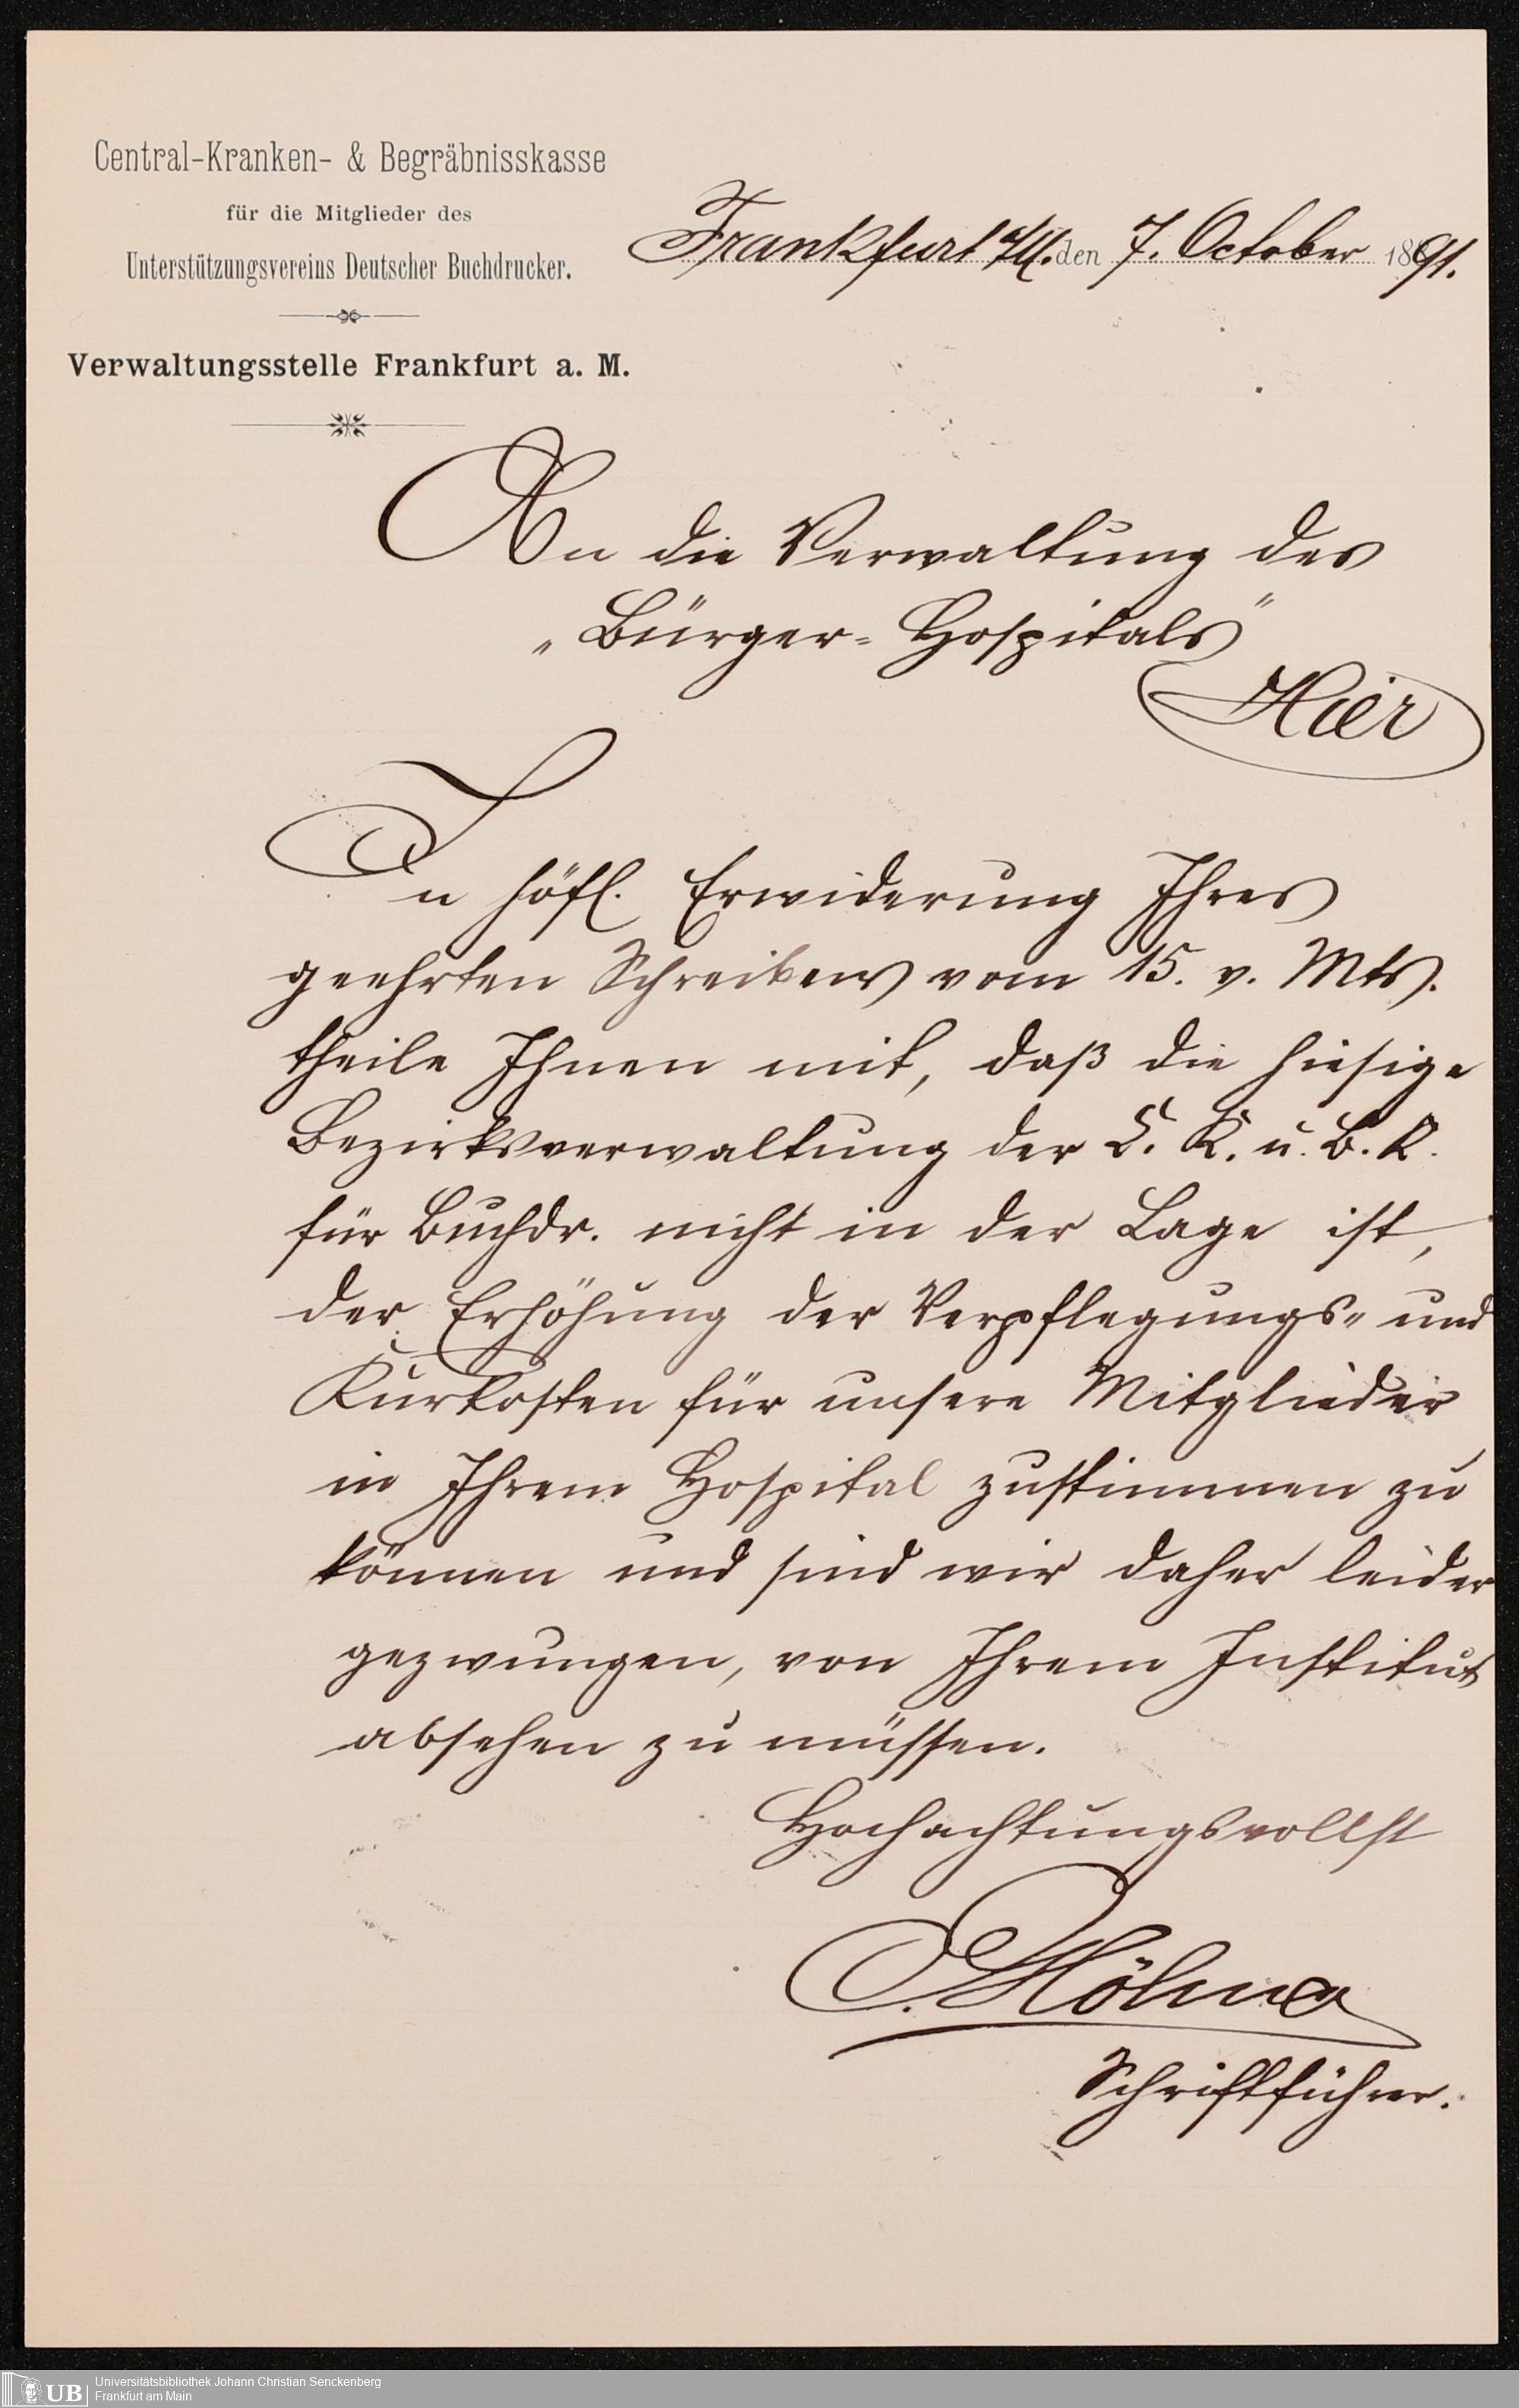 Central-Kranken- & Begräbnisskasse
für die Mitglieder des
Unterstützungsvereins Deutscher Buchdrucker.
Verwaltungsstelle Frankfurt a. M.
Frankfurt a/M. den 7. October 1891.
An die Verwaltung des
„Bürger-Hospitals"
Hier
In höfl. Erwiderung Ihres
geehrten Schreibens vom 15. v. Mts.
theile Ihnen mit, daß die hiesige
Bezirksverwaltung der C. K. u. B. K.
für Buchdr. nicht in der Lage ist,
der Erhöhung der Verpflegungs- und
Kurkosten für unsere Mitglieder
in Ihrem Hospital zustimmen zu
können und sind wir daher leider
gezwungen, von Ihrem Institut
absehen zu müssen.
Hochachtungsvollst
Schriftführer.
UB
Universitätsbibliothek Johann Christian Senckenberg
Frankfurt am Main